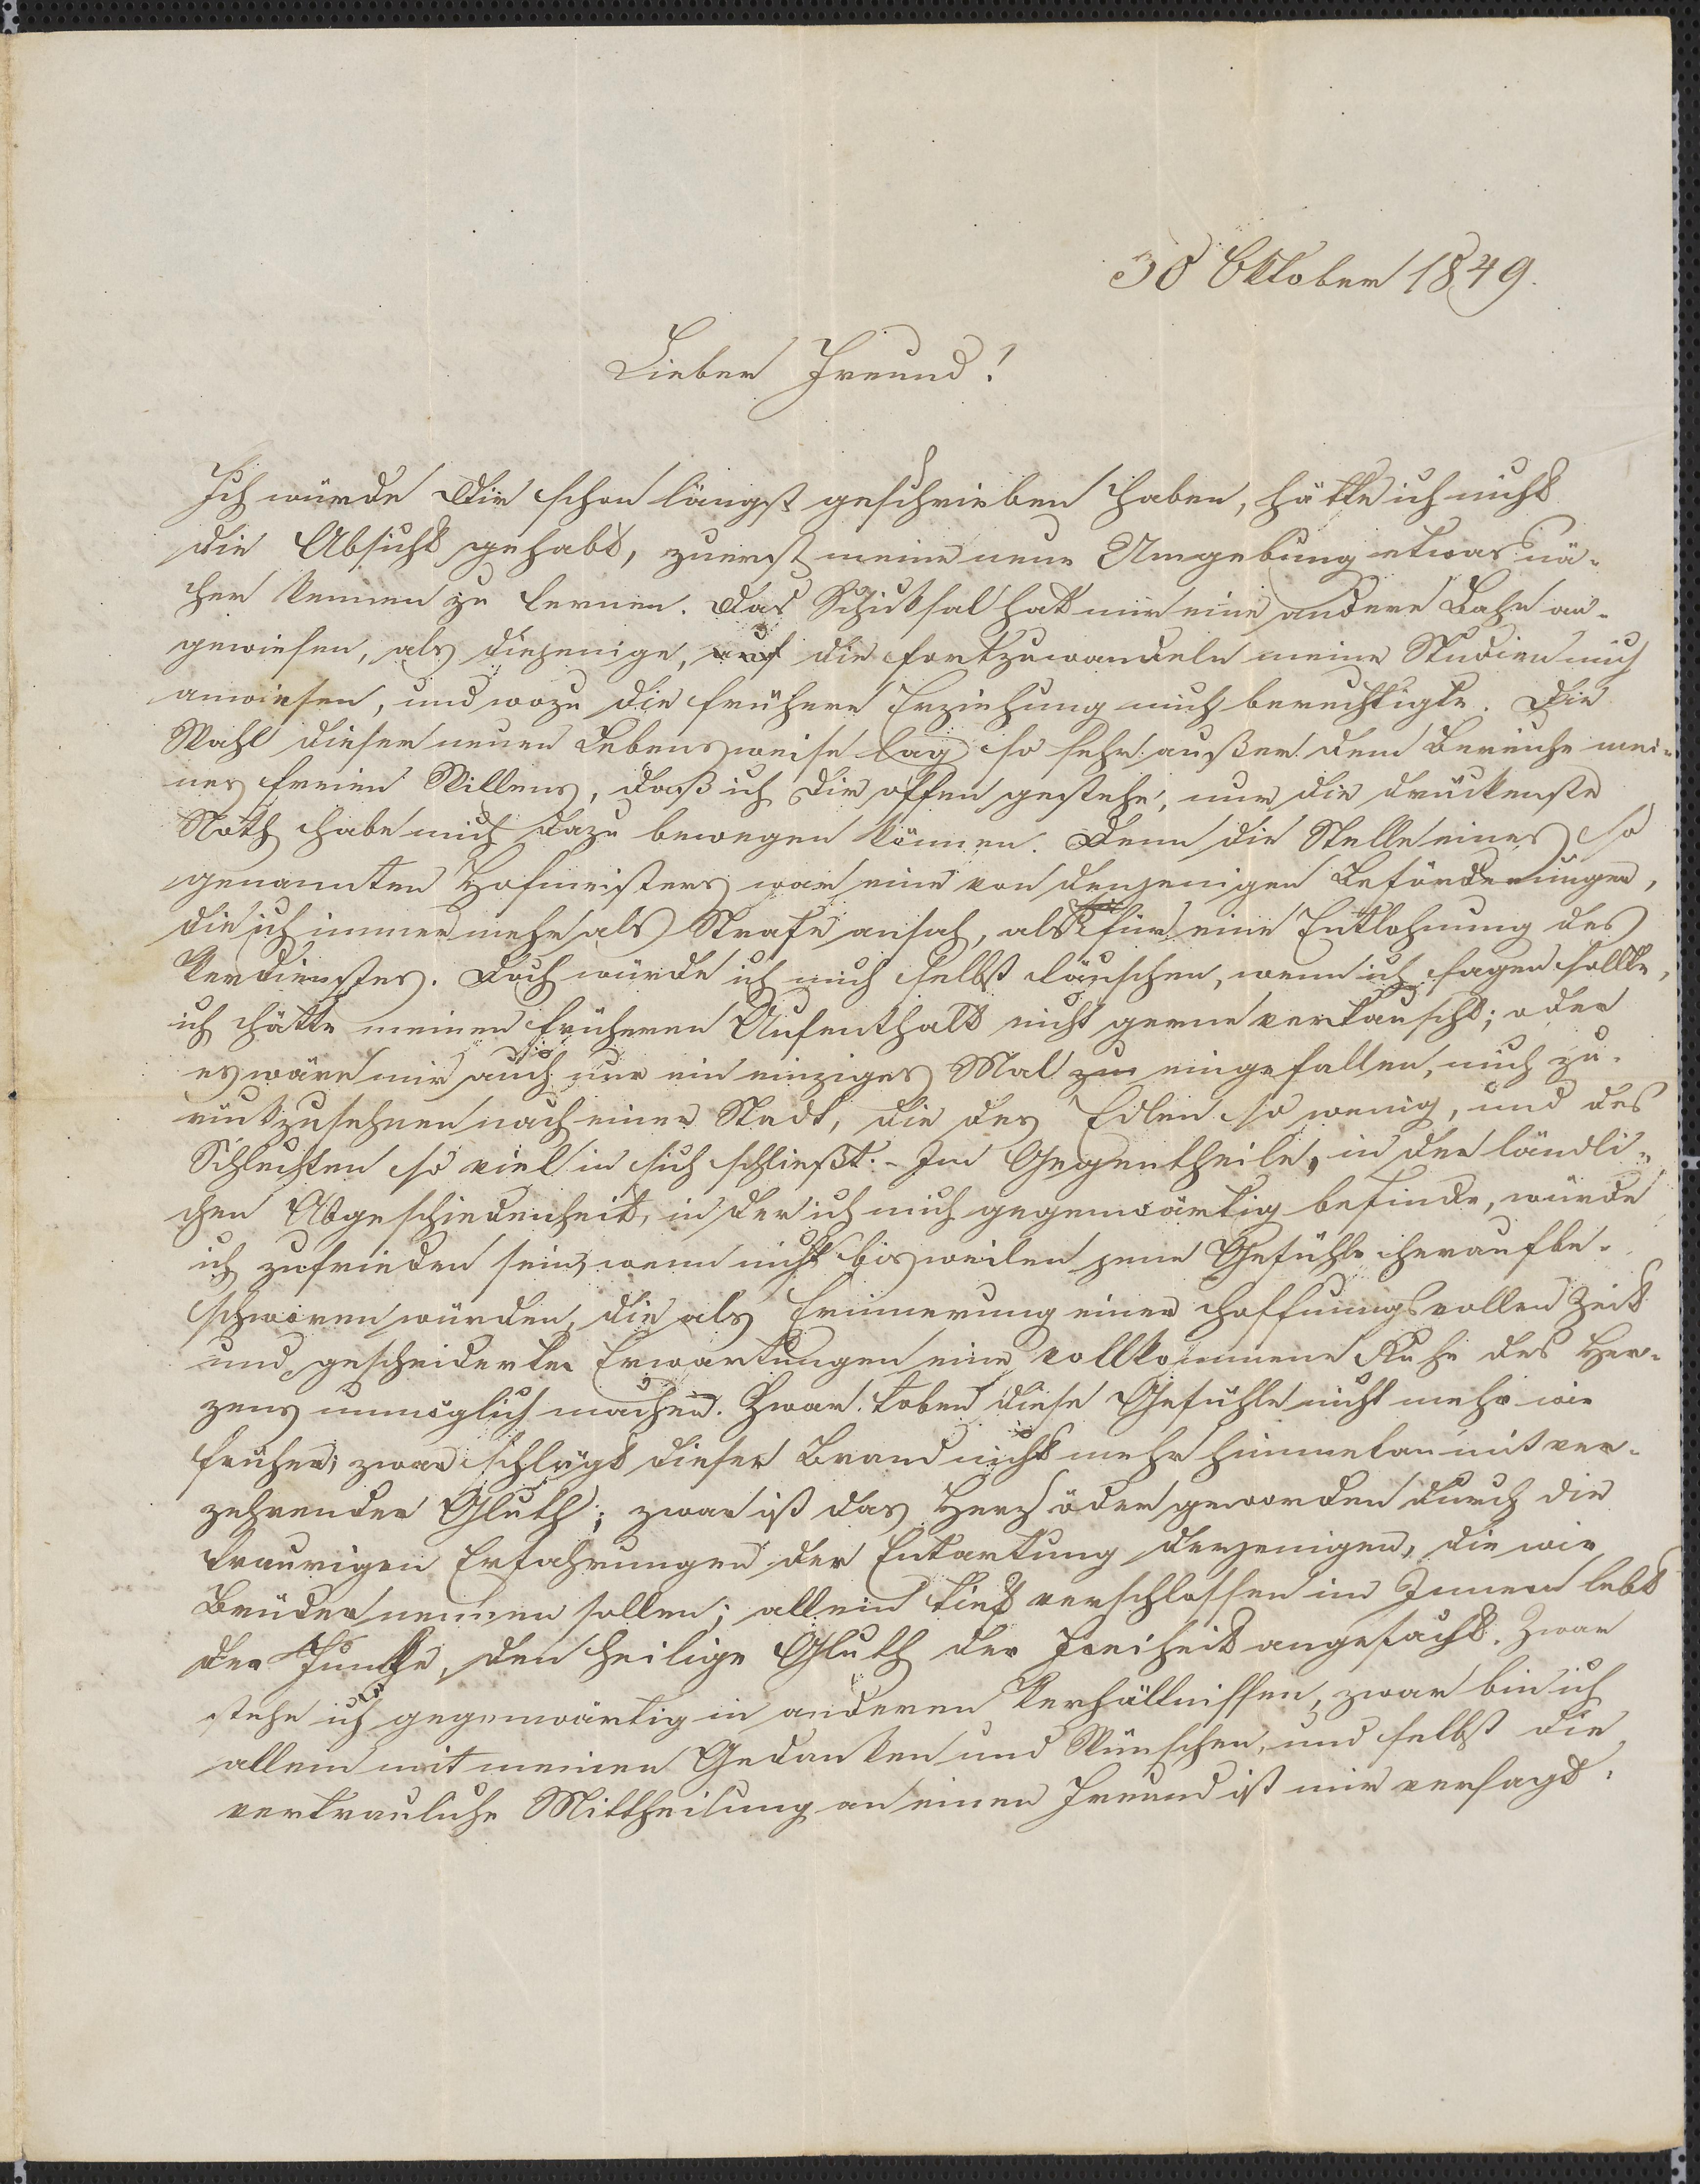 30 Oktober 1849.
Lieber Freund!
Ich würde Dir schon längst geschrieben haben, hätte ich nicht
die Absicht gehabt, zuerst meine neue Umgebung etwas nä-
her kennen zu lernen. Das Schiksal hat mir eine andere Bahn an-
gewiesen, als diejenige, auf die fortzuwandeln meine Studien mich
anwiesen, und wozu die frühere Erziehung mich berechtigte. Die
Wahl dieser neuen Lebensweise lag so sehr außer dem Bereiche mei-
nes freien Willens, daß ich Dir offen gestehe, nur die drückenste
Noth habe mich dazu bewegen können. Denn die Stelle eines so
genannten Hofmeisters war eine von denjenigen Beförderungen,
die ich immer mehr als Strafe ansah, als für eine Entlohnung des
Verdienstes. Doch würde ich mich selbst täuschen, wenn ich sagen sollte,
ich hätte meinen früheren Aufenthalt nicht gerne vertauscht; oder
es wäre mir auch nur ein einziges Mal zu eingefallen, mich zu-
rückzusehnen nach einer Stadt, die des Edlen so wenig, und des
Schlechten so viel in sich schließt. - Im Gegentheile, in der ländli-
chen Abgeschiedenheit, in der ich mich gegenwärtig befinde, würde
ich zufrieden sein, wenn nicht bisweilen jene Gefühle heraufbe-
schworen würden, die als Erinnerung einer hoffnungsvollen Zeit
und gescheiderter Erwartungen eine vollkommene Ruhe des Her-
zens unmöglich machen. Zwar toben diese Gefühle nicht mehr wie
früher; zwar schlägt dieser Brand nicht mehr himmelan mit ver-
zehrender Gluth; zwar ist das Herz öder geworden durch die
traurigen Erfahrungen der Entartung derjenigen, die wir
Brüder nennen sollen; allein tief verschlossen im Innern lebt
der Funke, den heilige Gluth der Freiheit angefacht. Zwar
stehe ich gegenwärtig in anderen Verhältnissen, zwar bin ich
allein mit meinen Gedanken und Wünschen, und selbst die
vertrauliche Mittheilung an einen Freund ist mir versagt.